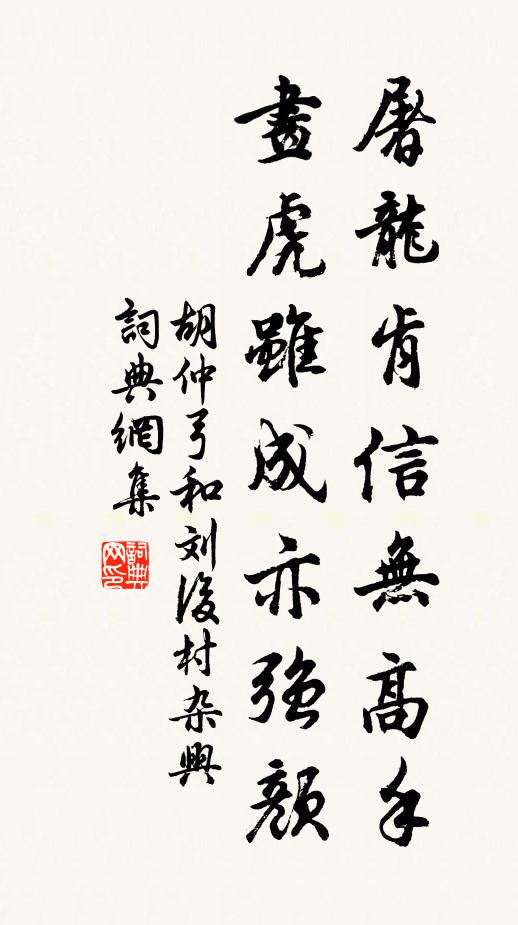 屠龍肯信無高手
畫虎雖成亦強顏
胡仲弓和刘後村杂興
詞典網集
詞典网印